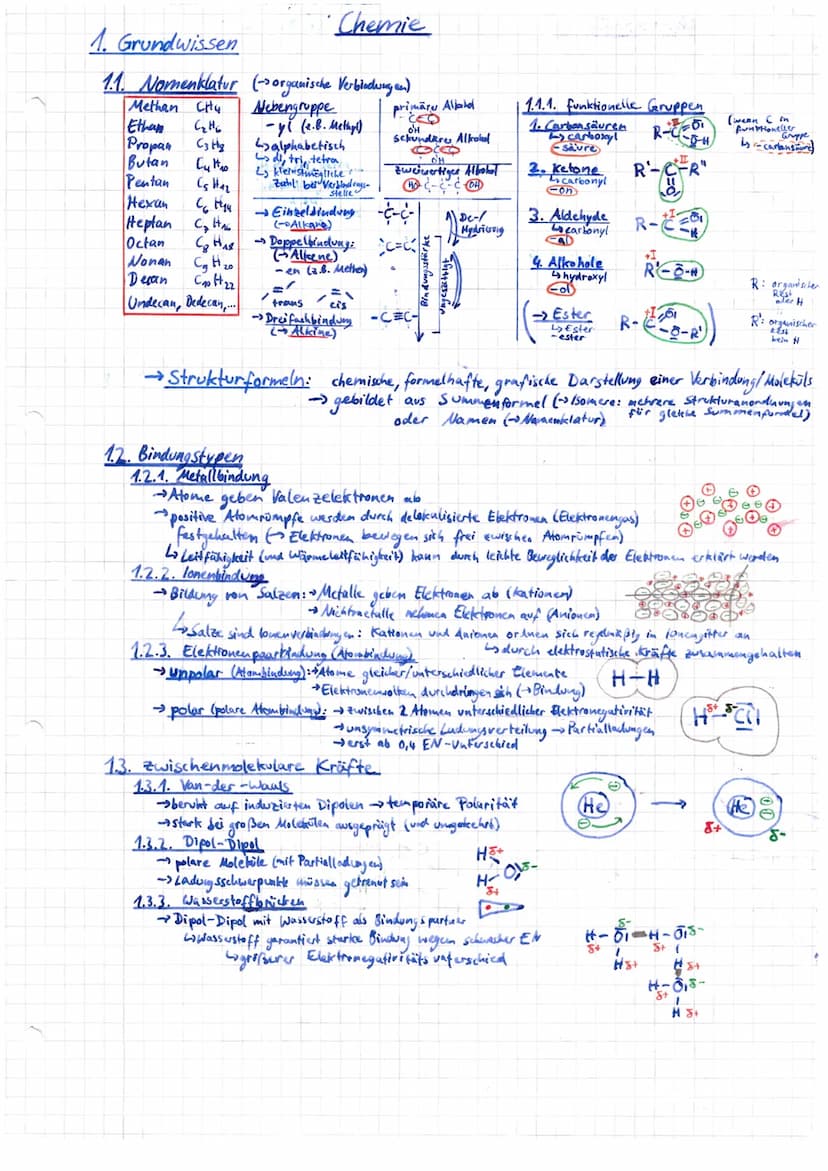 Chemie
1. Grundwissen
1.1. Nomenklatur (→organische Verbindungen)
Methan CH4
Ethan C2H6
Propan C3H8
Butan C4H10
Pentan C5H12
Hexan C6H14
Heptan C7H16
Octan C8H18
Nonan C9H20
Decan C10H22
Undecan, Dodecan,...
Nebengruppe
-yl (z.B. Methyl)
↳alphabetisch
↳di, tri, tetra
↳kleinstmögliche
Zahl bei Verbindungs-
stelle
→Einzelbindung
(→Alkane)
→Doppelbindung:
(→Alkene)
-en (z.B. Methen)
trans cis
→Dreifachbindung
(→Alkine)
primärer Alkohol
C-C
OH
sekundärer Alkohol
C-C-C
OH
zweiwertiger Alkohol
HO C-C-C OH
-C-C-
C=C
-C≡C-
Bindungsstärke
ungesättigt
De-/
Hydrierung
1.1.1. funktionelle Gruppen
1. Carbonsäuren
↳carboxyl
-säure
(wenn C in
funktioneller
Gruppe
↳-carbonsäure)
2. Ketone
↳carbonyl
-on
R'-C-R"
3. Aldehyde
↳carbonyl
-al
4. Alkohole
↳hydroxyl
-ol
R'-O-H
(→Ester
↳Ester
-ester
R: organischer
Rest
oder H
R': organischer
Rest
kein H
→Strukturformeln: chemische, formelhafte, grafische Darstellung einer Verbindung/Moleküls
→gebildet aus Summenformel (→Isomere: mehrere Strukturanordnungen
für gleiche Summenformel)
oder Namen (→Nomenklatur)
1.2. Bindungstypen
1.2.1. Metallbindung
→Atome geben Valenzelektronen ab
→positive Atomrümpfe werden durch delokalisierte Elektronen (Elektronengas)
festgehalten (→Elektronen bewegen sich frei zwischen Atomrümpfen)
↳Leitfähigkeit (und Wärmeleitfähigkeit) kann durch leichte Beweglichkeit der Elektronen erklärt werden
1.2.2. Ionenbindung
→Bildung von Salzen: →Metalle geben Elektronen ab (Kationen)
→Nichtmetalle nehmen Elektronen auf (Anionen)
↳Salze sind Ionenverbindungen: Kationen und Anionen ordnen sich regelmäßig in Ionengitter an
↳durch elektrostatische Kräfte zusammengehalten
1.2.3. Elektronenpaarbindung (Atombindung)
→unpolar (Atombindung): →Atome gleicher/unterschiedlicher Elemente
→Elektronenwolken durchdringen sich (→Bindung)
H-H
→polar (polare Atombindung): →zwischen 2 Atomen unterschiedlicher Elektronegativität
→unsymmetrische Ladungsverteilung →Partialladungen
→erst ab 0,4 EN-Unterschied
H δ+ δ- Cl
1.3. Zwischenmolekulare Kräfte
1.3.1. Van-der-Waals
→beruht auf induzierten Dipolen →temporäre Polarität
→stark bei großen Molekülen ausgeprägt (und umgekehrt)
He → He
δ+ δ-
1.3.2. Dipol-Dipol
→polare Moleküle (mit Partialladungen)
→Ladungsschwerpunkte müssen getrennt sein
H δ+
O δ-
H
δ+
1.3.3. Wasserstoffbrücken
→Dipol-Dipol mit Wasserstoff als Bindungspartner
↳Wasserstoff garantiert starke Bindung wegen schwacher EN
↳größerer Elektronegativitätsunterschied
δ-
H-O H-O δ-
δ+ δ+
H δ+ H δ+
H-O δ-
δ+
H δ+